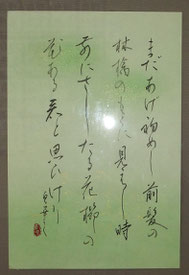 まだあげ初めし前髪の
林檎のもとに見えし時
前にさしたる花櫛の
花ある君と思ひけり